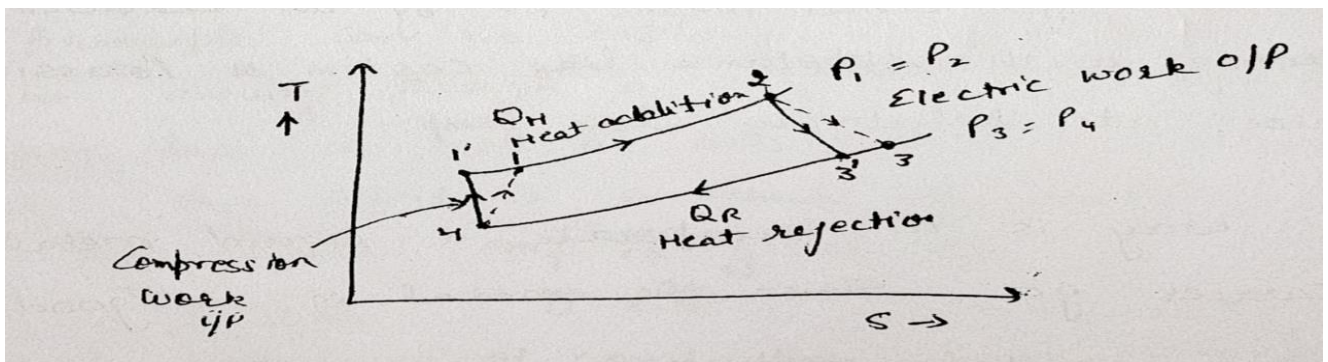 T
↑
QH
Heat addition
2
P1 = P2
Electric work O/P
P3 = P4
1'
1
3
3'
4
QR
Heat rejection
Compression
work
i/p
S →